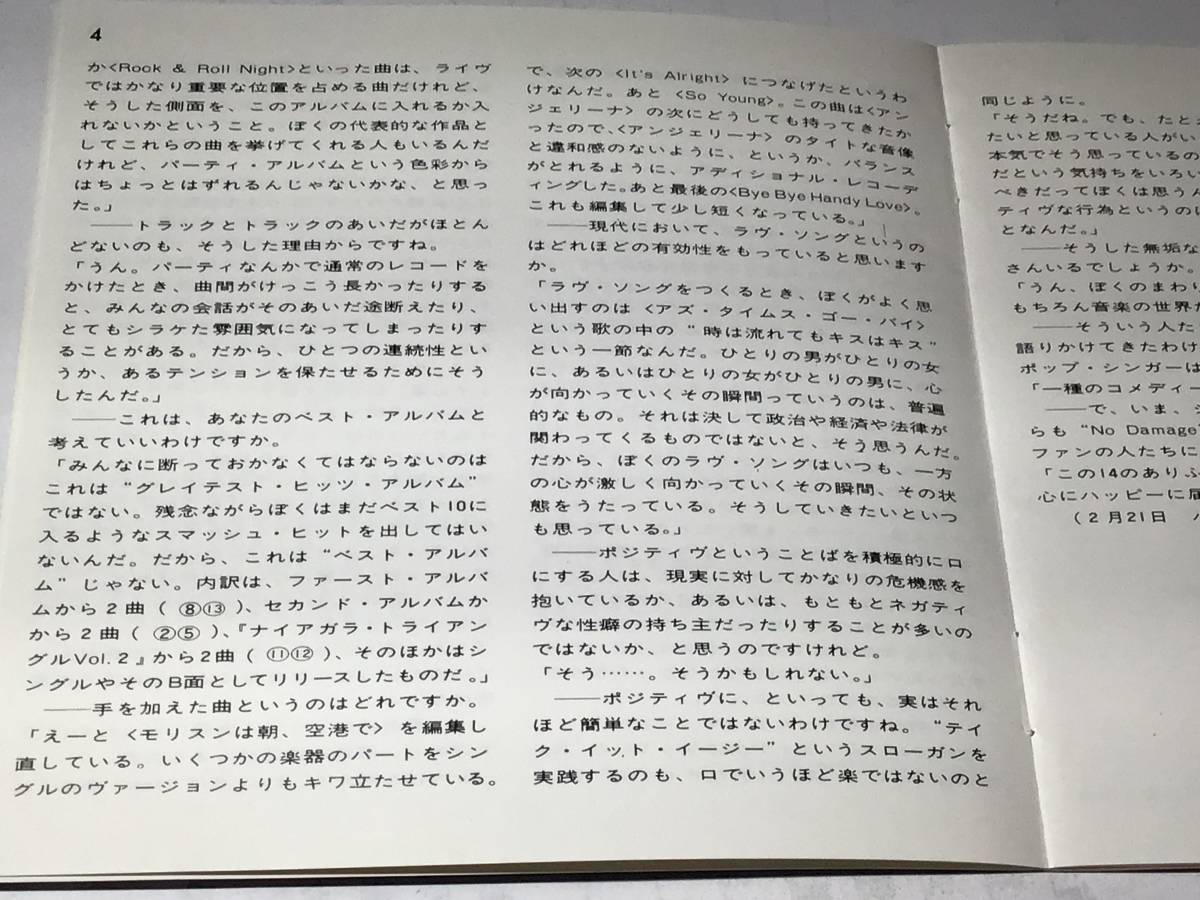 4
か〈Rock & Roll Night〉といった曲は、ライヴ
ではかなり重要な位置を占める曲だけれど、
そうした側面を、このアルバムに入れるか入
れないかということ。ぼくの代表的な作品と
してこれらの曲を挙げてくれる人もいるんだ
けれど、パーティ・アルバムという色彩から
はちょっとはずれるんじゃないかな、と思っ
た。」
――トラックとトラックのあいだがほとん
どないのも、そうした理由からですね。
「うん。パーティなんかで通常のレコードを
かけたとき、曲間がけっこう長かったりする
と、みんなの会話がそのあいだ途断えたり、
とてもシラケた雰囲気になってしまったりす
ることがある。だから、ひとつの連続性とい
うか、あるテンションを保たせるためにそう
したんだ。」
――これは、あなたのベスト・アルバムと
考えていいわけですか。
「みんなに断っておかなくてはならないのは
これは“グレイテスト・ヒッツ・アルバム”
ではない。残念ながらぼくはまだベスト10に
入るようなスマッシュ・ヒットを出してはい
ないんだ。だから、これは“ベスト・アルバ
ム”じゃない。内訳は、ファースト・アルバ
ムから2曲(⑧⑬)、セカンド・アルバムか
から2曲(②⑤)、『ナイアガラ・トライアン
グルVol.2』から2曲(⑪⑫)、そのほかはシ
ングルやそのB面としてリリースしたものだ。」
――手を加えた曲というのはどれですか。
「えーと〈モリスンは朝、空港で〉を編集し
直している。いくつかの楽器のパートをシン
グルのヴァージョンよりもキワ立たせている。
で、次の〈It's Alright〉につなげたというわ
けなんだ。あと〈So Young〉。この曲は〈アン
ジェリーナ〉の次にどうしても持ってきたか
ったので、〈アンジェリーナ〉のタイトな音像
と違和感のないように、というか、バランス
がとれるように、アディショナル・レコーデ
ィングした。あと最後の〈Bye Bye Handy Love〉。
これも編集して少し短くなっている。」
――現代において、ラヴ・ソングというの
はどれほどの有効性をもっていると思います
か。
「ラヴ・ソングをつくるとき、ぼくがよく思
い出すのは〈アズ・タイムス・ゴー・バイ〉
という歌の中の“時は流れてもキスはキス”
という一節なんだ。ひとりの男がひとりの女
に、あるいはひとりの女がひとりの男に、心
が向かっていくその瞬間っていうのは、普遍
的なもの。それは決して政治や経済や法律が
関わってくるものではないと、そう思うんだ。
だから、ぼくのラヴ・ソングはいつも、一方
の心が激しく向かっていくその瞬間、その状
態をうたっている。そうしていきたいといつ
も思っている。」
――ポジティヴということばを積極的に口
にする人は、現実に対してかなりの危機感を
抱いているか、あるいは、もともとネガティ
ヴな性癖の持ち主だったりすることが多いの
ではないか、と思うのですけれど。
「そう……。そうかもしれない。」
――ポジティヴに、といっても、実はそれ
ほど簡単なことではないわけですね。“テイ
ク・イット・イージー”というスローガンを
実践するのも、口でいうほど楽ではないのと
同じように。
「そうだね。でも、たと
たいと思っている人がい
本気でそう思っているの
だという気持ちをいろい
べきだってぼくは思うん
ティヴな行為というのは
となんだ。」
――そうした無垢な
さんいるでしょうか。
「うん、ぼくのまわり
もちろん音楽の世界だ
――そういう人た
語りかけてきたわけ
ポップ・シンガーは
「一種のコメディー
――で、いま、
らも“No Damage”
ファンの人たちに
「この14のありふ
心にハッピーに届
(2月21日